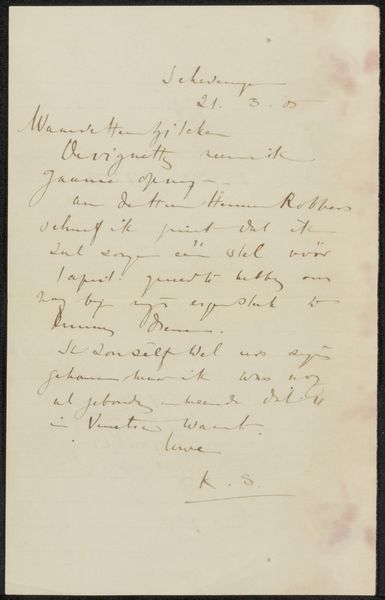 Scheveningen
21. 3. 05
Waarde Heer Zilcken
De vignetten neem ik
gaarne op
aan den Heer Herman Robbers
schrijf ik juist dat ik
zal zorgen één stel vóór
1 april gereed te hebben om
nog bij
te
dienen.
Ik zou zelf wel eens zijn
gekomen maar ik was nog
al gebonden meende dat U
in Venetië waart.
Uwe
K. S.